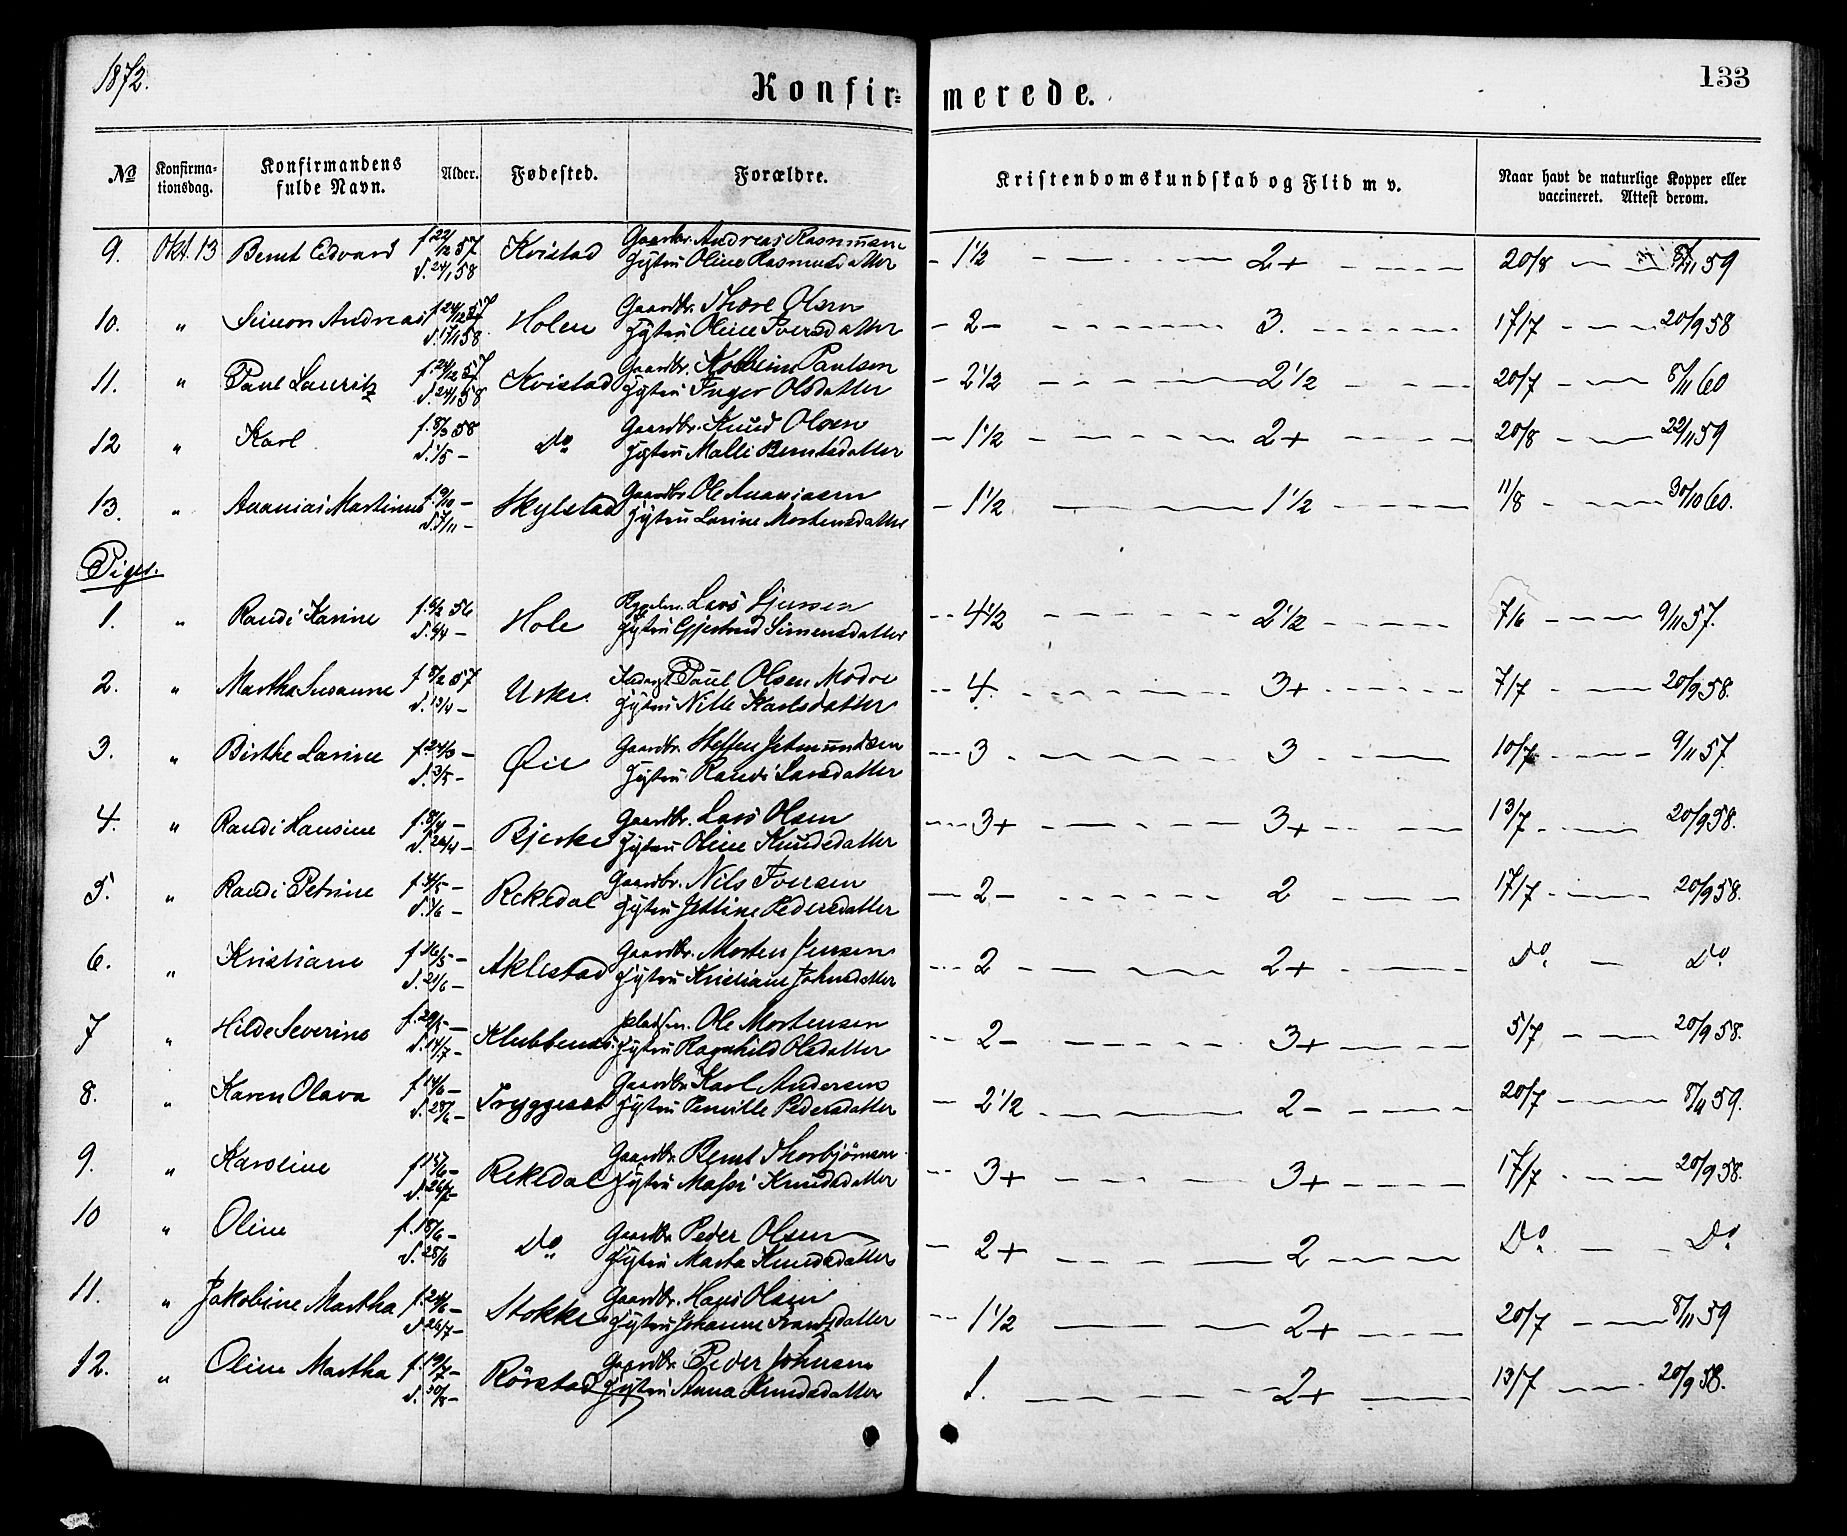 1872.
Konfir= merede.
133
No Konfirma-tionsdag. Konfirmandens fulde Navn. Alder. Fødested. Forældre. Kristendomskundskab og Flid m v. Naar havt de naturlige Kopper eller vaccineret. Attest derom.
9. Okt. 13 Bernt Edvard f. 22/12 57 Kvistad Gaardbr. Andreas Rasmussen - 1½ 2+ 20/8 8/11 59
d. 24/1 58 Hustru Oline Rasmusdatter
10. " Simon Andreas f. 24/12 57 Holen Gaardbr. Thore Olsen - 2- 3. 17/7 20/9 58
d. 17/1 58 Hustru Oline Iversdatter
11. " Paul Lauritz f. 24/12 57 Kvistad Gaardbr. Kolbein Paulsen - 2½ 2½ 20/7 8/11 60
d. 24/1 58 Hustru Inger Olsdatter
12 " Karl f. 8/3 58 Do Gaardbr. Knud Olsen - 1½ 2+ 20/8 22/11 59
d. 1/5 - Hustru Malli Berntsdatter
13. " Ananias Martinus f. 9/10 - Skylstad Gaardbr. Ole Ananiasen - 1½ 1½ 11/8 30/10 60.
d. 7/11 - Hustru Larine Mortensdatter
Piger.
1. " Randi Karine f. 8/2 56 Hole Lars 4½ 2½ 7/6 9/11 57.
d. 6/4 - Hustru Gjertrud Simensdatter
2. " Martha Susanne f. 8/2 57 Urke. Paul Olsen Modre 4. 3+ 7/7 20/9 58.
d. 13/4 - Hustru Nille Karlsdatter
3. " Birthe Larine f. 24/3 - Øie Gaardbr. Steffen Jetmundsen 3 3 10/7 9/11 57.
d. 3/5 - Hustru Randi Larsdatter
4. " Randi Hansine f. 8/4 - Bjerke Gaardbr. Lars Olsen 3+ 3+ 13/7 20/9 58.
d. 26/4 - Hustru Oline Knudsdatter
5. " Randi Petrine f. 4/5 - Rekdal Gaardbr. Nils Iversen 2- 2 17/7 20/9 58.
d. 1/6 - Hustru Jettine Pedersdatter
6. " Kristiane f. 16/5 - Aklestad Gaardbr. Morten Jensen 2 2+ Do. Do
d. 21/6 - Hustru Kristiane Johnsdatter
7 " Hilde Severine f. 29/5 - Ole Mortensen 2- 3+ 5/7 20/9 58.
d. 14/7 - Hustru Ragnhild Olsdatter
8. " Karen Olava f. 14/6 - Tryggestad Gaardbr. Karl Andersen 2½ 2- 20/7 8/11 59.
d. 28/6 - Hustru Pernille Pedersdatter
9. " Karoline f. 15/6 - Rekdal Gaardbr. Bernt Thorbjörnsen 3+ 3+ 17/7 20/9 58.
d. 26/7 - Hustru Massi Knudsdatter
10 " Oline f. 18/6 - Do Gaardbr. Peder Olsen 2+ 2 Do. Do.
d. 28/6 Hustru Marta Knudsdatter
11. " Jakobine Martha f. 24/6 - Stokke Gaardbr. Hans Olsen 1½ 2+ 20/7 8/11 59
d. 26/7 - Hustru Johanne Frantzdatter
12. " Oline Martha f. 19/7 - Rörstad Gaardbr. Peder Johnsen 1. 2+ 13/7 20/9 58.
d. 30/8 - Hustru Anna Knudsdatter